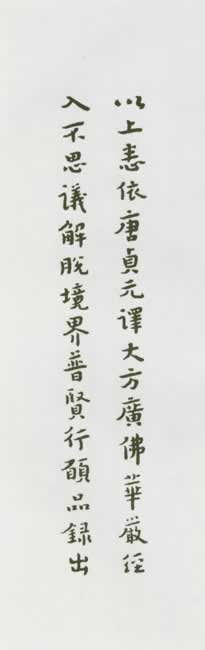 以上悉依唐貞元譯大方廣佛華嚴經
入不思議解脫境界普賢行願品録出